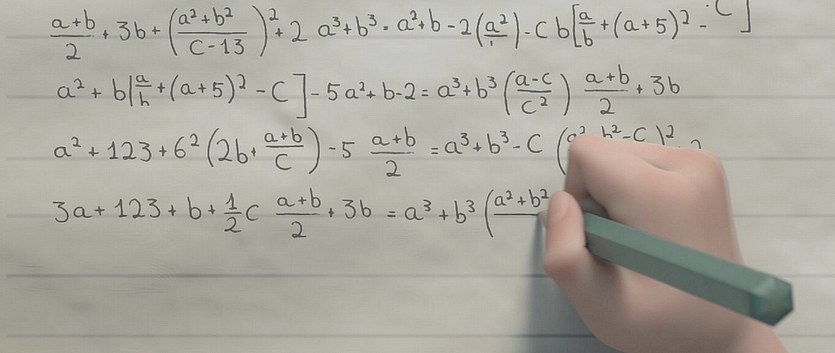 (a+b)/2 + 3b + ((a²+b²)/(C-13))² + 2 a³+b³ = a²+b - 2(a²/ ) - C b[a/b + (a+5)² - C]
a² + b[a/b + (a+5)² - C] - 5a²+b-2 = a³+b³ ((a-c)/c²) (a+b)/2 + 3b
a² + 123 + 6² (2b + (a+b)/C) - 5 (a+b)/2 = a³+b³ - C (a² b²-C)² 2
3a + 123 + b + 1/2 c (a+b)/2 + 3b = a³ + b³ (a²+b²